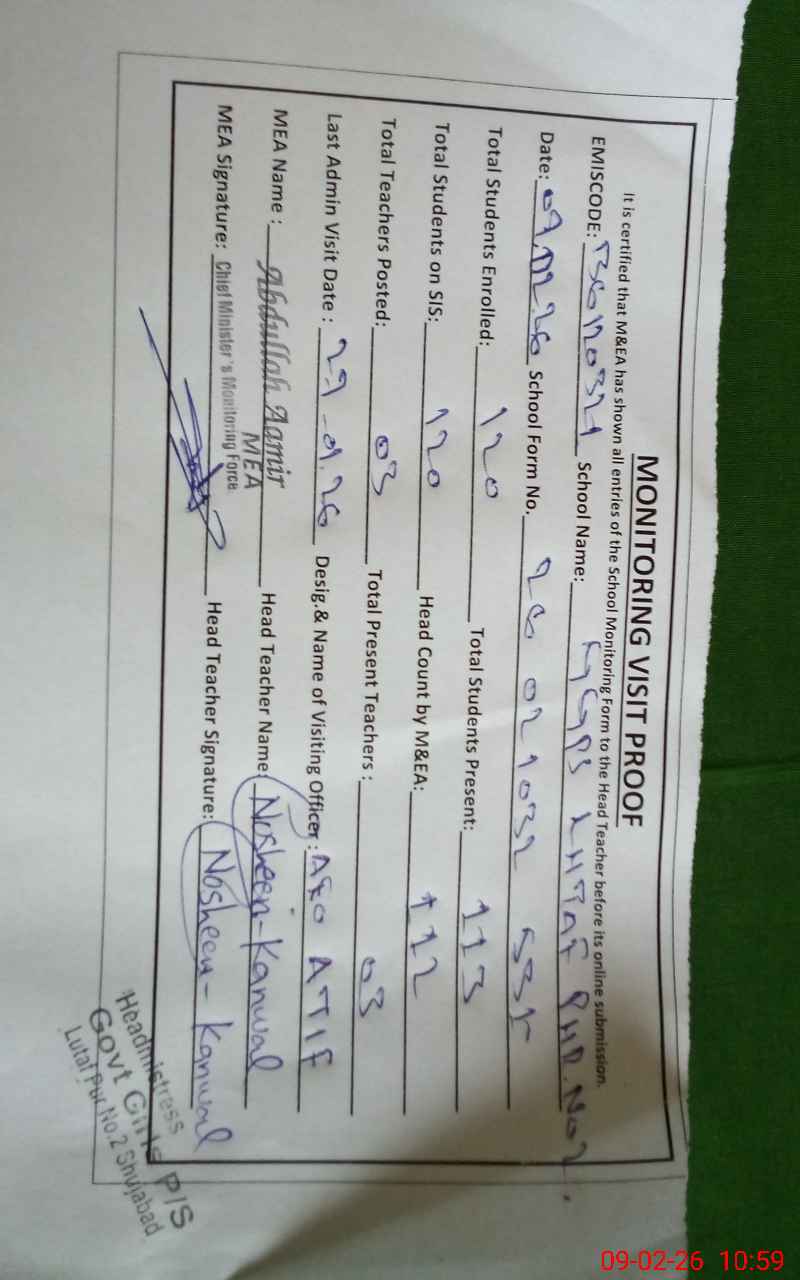 MONITORING VISIT PROOF
It is certified that M&EA has shown all entries of the School Monitoring Form to the Head Teacher before its online submission.
EMISCODE: School Name: No2.
Date: School Form No.
Total Students Enrolled: 120 Total Students Present: 113
Total Students on SIS: 120 Head Count by M&EA: 112
Total Teachers Posted: 03 Total Present Teachers : 03
Last Admin Visit Date : Desig.& Name of Visiting Officer : AEO ATIF
MEA Name : Abdullah Aamir Head Teacher Name: Nosheen-Kanwal
MEA
MEA Signature: Chief Minister's Monitoring Force Head Teacher Signature: Nosheen-Kanwal
Headmistress
Govt Girls P/S
Lutaf Pur No.2 Shujabad
09-02-26 10:59